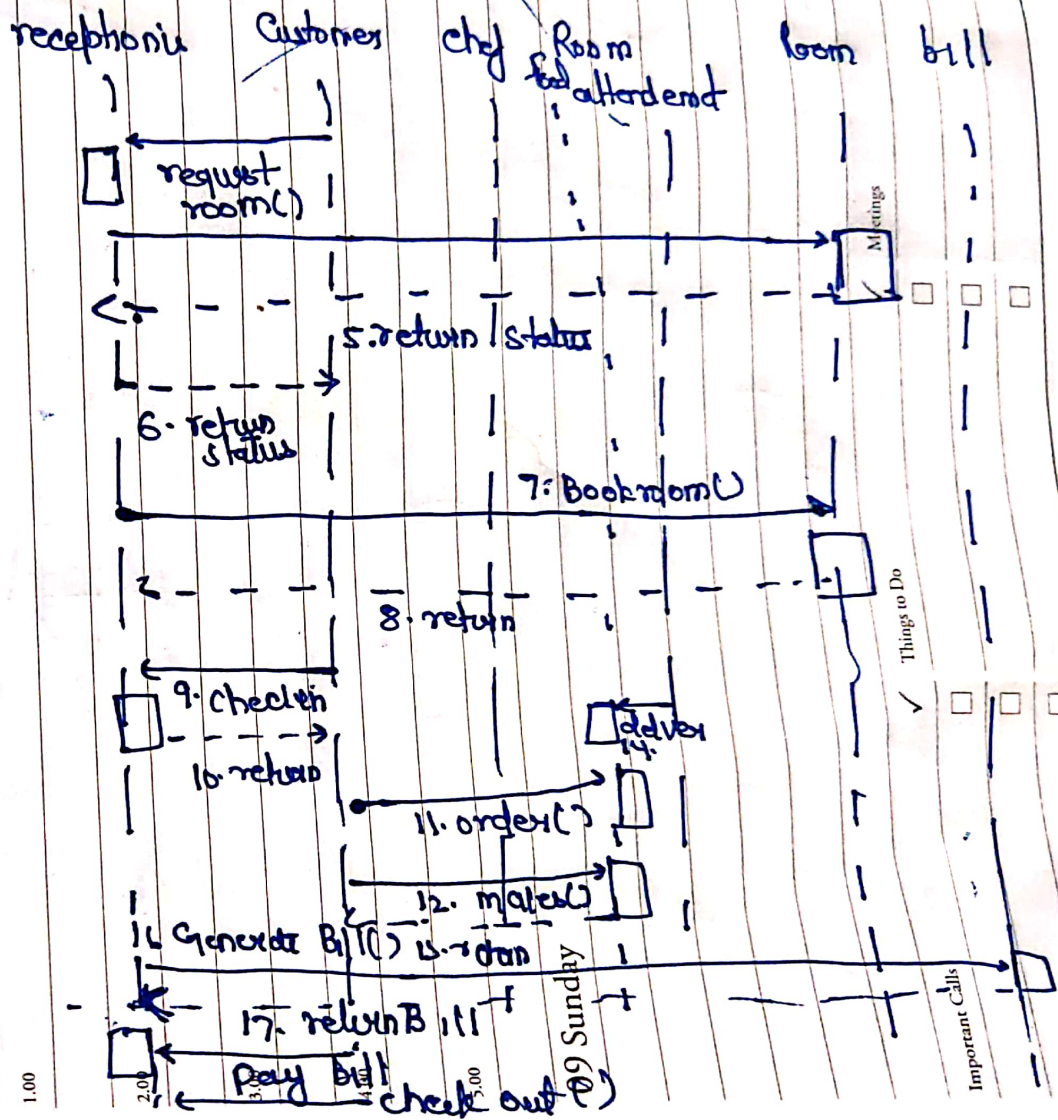 receptionis Customer chef Room room bill
food attendend
request
room()
Meetings
5. return status
6. return
status
7: Bookroom()
8. return
Things to Do
9. Checkin
10. return
14.
11. order()
12. makes()
16 Generate Bill() 13. return
17. return Bill
pay bill
check out()
09 Sunday
Important Calls
1.00
2.00
3.00
4.00
5.00